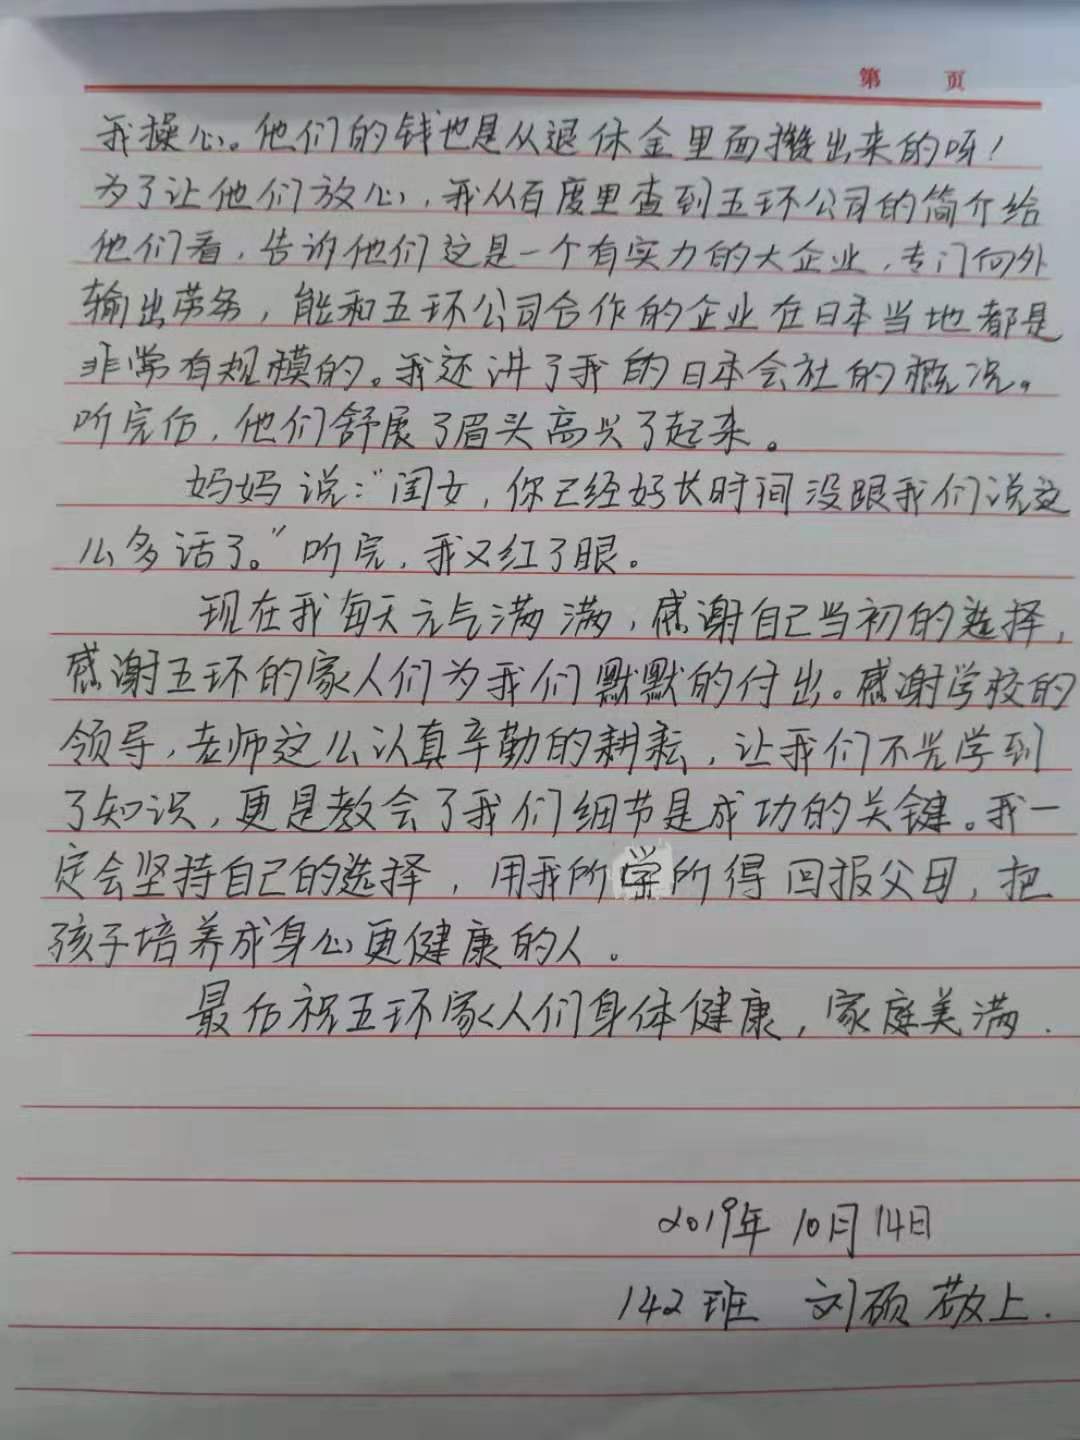 第 页
我操心。他们的钱也是从退休金里面攒出来的呀！
为了让他们放心，我从百度里查到五环公司的简介给
他们看，告诉他们这是一个有实力的大企业，专门向外
输出劳务，能和五环公司合作的企业在日本当地都是
非常有规模的。我还讲了我的日本会社的概况。
听完后，他们舒展了眉头高兴了起来。
妈妈说：“闺女，你已经好长时间没跟我们说这
么多话了。”听完，我又红了眼。
现在我每天元气满满，感谢自己当初的选择，
感谢五环的家人们为我们默默的付出。感谢学校的
领导，老师这么认真辛勤的耕耘，让我们不光学到
了知识，更是教会了我们细节是成功的关键。我一
定会坚持自己的选择，用我所学所得回报父母，把
孩子培养成身心更健康的人。
最后祝五环家人们身体健康，家庭美满.
2019年10月14日
142班 刘硕 敬上.